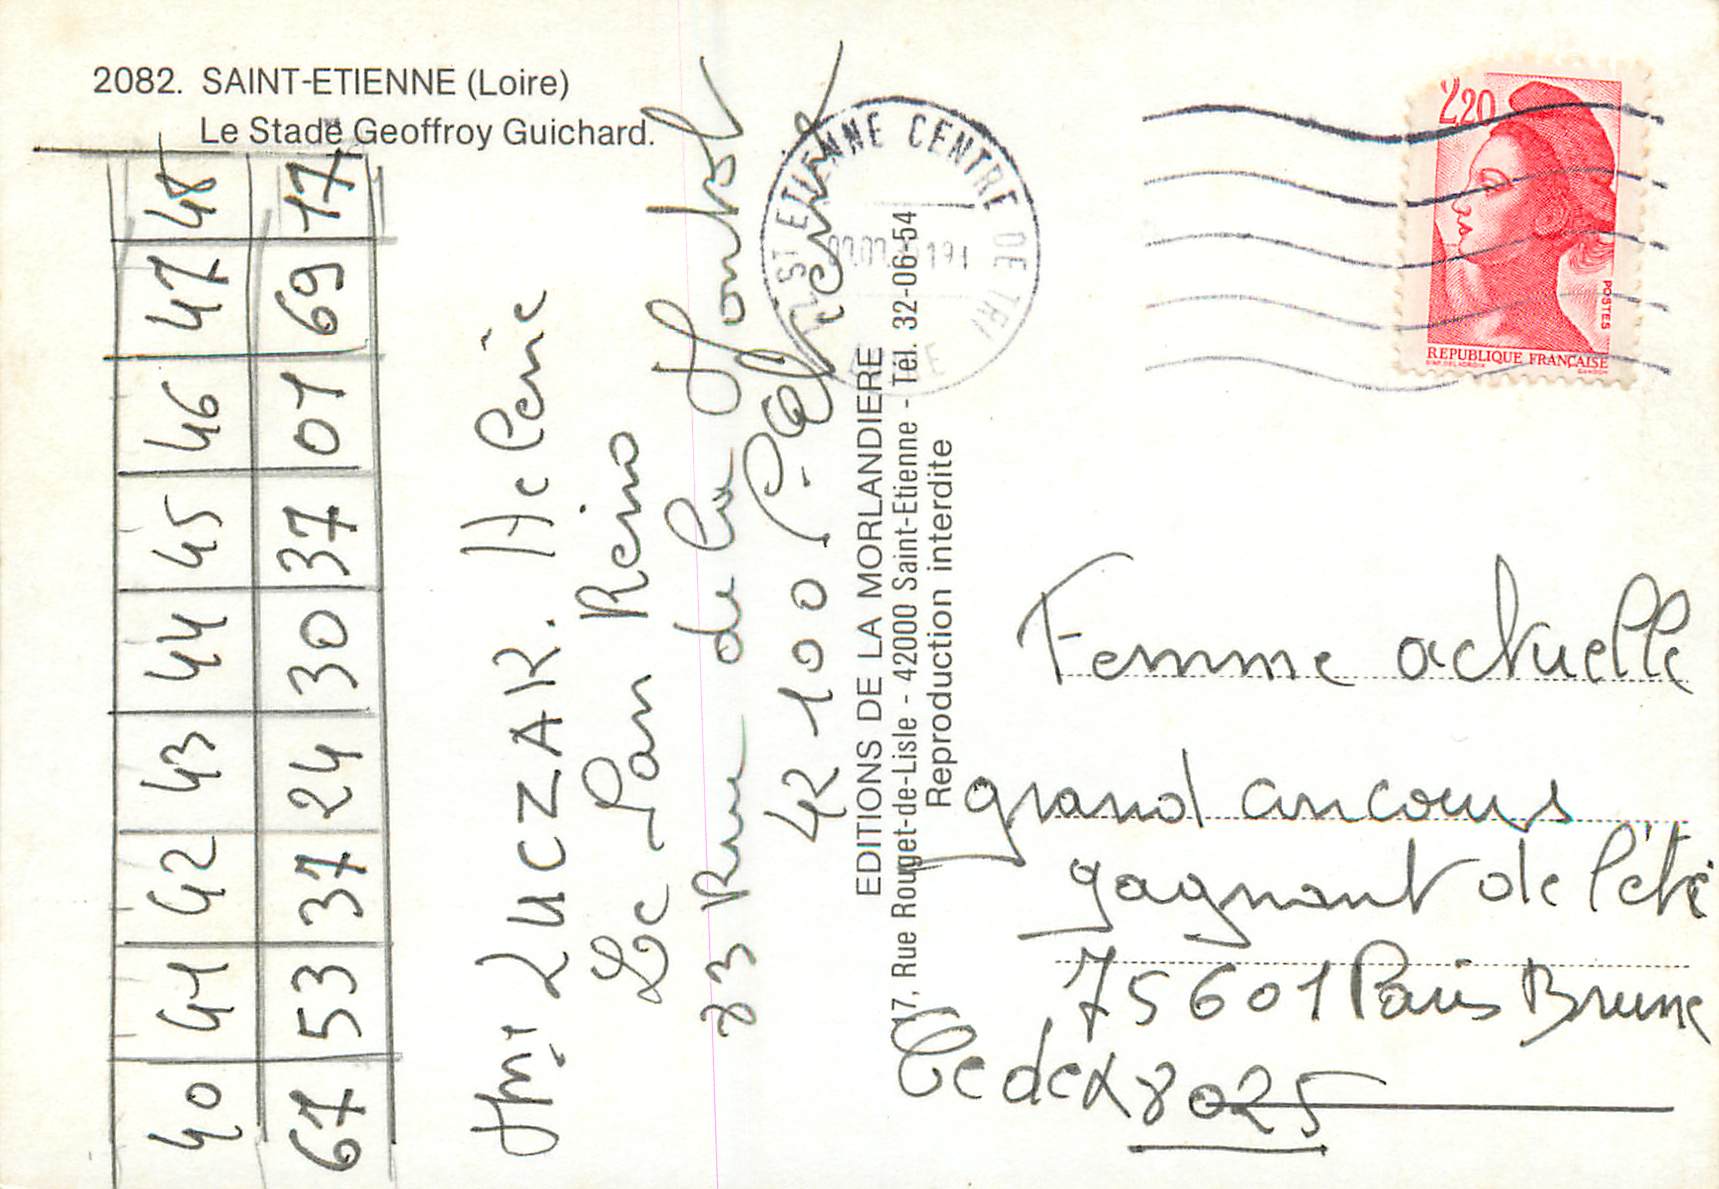 2082. SAINT-ETIENNE (Loire)
Le Stade Geoffroy Guichard.
40 41 42 43 44 45 46 47 48
67 53 37 24 30 37 01 69 17
KUCZAK. Helene
Le San Remo
33 Rue de la
42100 Etienne
EDITIONS DE LA MORLANDIERE
17, Rue Rouget-de-Lisle - 42000 Saint-Etienne - Tél. 32-06-54
Reproduction interdite
ST ETIENNE CENTRE DE TRI
2,20
POSTES
REPUBLIQUE FRANÇAISE
Femme actuelle
grand concours
gagnant de l'été
75601 Paris Brune
Cedex 8025